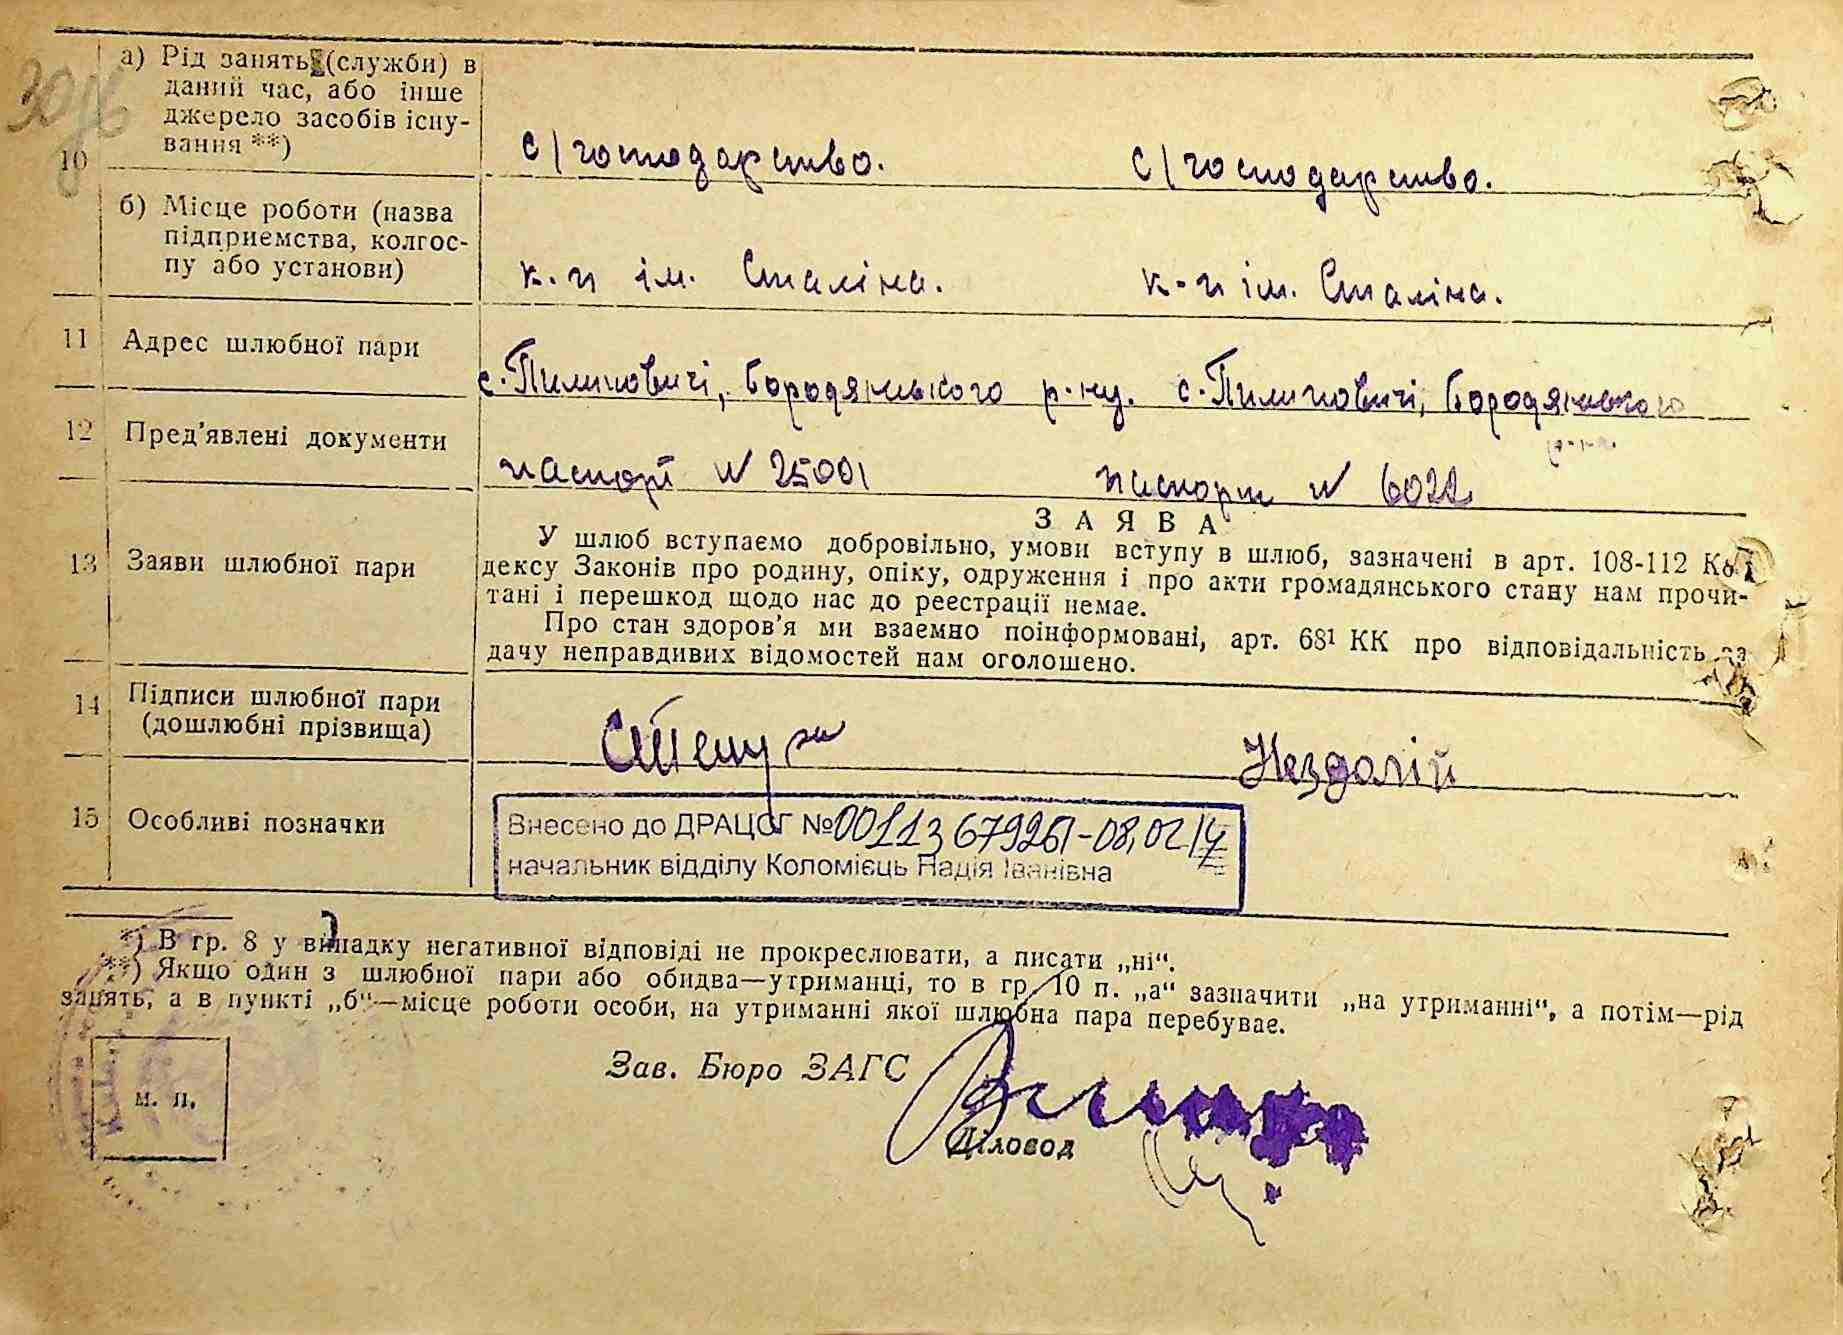 а) Рід занять (служби) в
даний час, або інше
джерело засобів існу-
вання **)
10
с/господарство. с/господарство.
б) Місце роботи (назва
підприємства, колгос-
пу або установи)
к-п ім. Сталіна. к-п ім. Сталіна.
11 Адрес шлюбної пари
с. Пилиповичі, Бородянського р-ну. с. Пилиповичі, Бородянського
р-ну.
12 Пред'явлені документи
паспорт N 25001 паспорт N 6022
13 Заяви шлюбної пари
ЗАЯВА
У шлюб вступаємо добровільно, умови вступу в шлюб, зазначені в арт. 108-112 Ко-
дексу Законів про родину, опіку, одруження і про акти громадянського стану нам прочи-
тані і перешкод щодо нас до реєстрації немає.
Про стан здоров'я ми взаємно поінформовані, арт. 68¹ КК про відповідальність за
дачу неправдивих відомостей нам оголошено.
14 Підписи шлюбної пари
(дошлюбні прізвища)
Нездолій
15 Особливі позначки
Внесено до ДРАЦСГ №00113679261-08,02/4
начальник відділу Коломієць Надія Іванівна
*) В гр. 8 у випадку негативної відповіді не прокреслювати, а писати „ні“.
**) Якщо один з шлюбної пари або обидва—утриманці, то в гр. 10 п. „а“ зазначити „на утриманні“, а потім—рід
занять, а в пункті „б“—місце роботи особи, на утриманні якої шлюбна пара перебуває.
Зав. Бюро ЗАГС
м. п.
Діловод